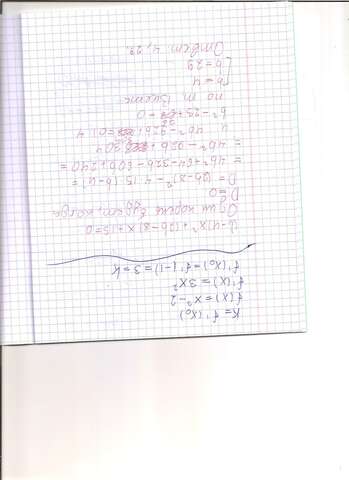 K = f'(x₀)
f(x) = x³ - 2
f'(x) = 3x²
f'(x₀) = f'(-1) = 3 = k
(b-4)x² + (2b-8)x + 15 = 0
Один корень будет, когда
D = 0
D = (2b-8)² - 4·15(b-4) =
= 4b² + 64 - 32b - 60b + 240 =
= 4b² - 92b + 304
4b² - 92b + = 0 | 4
b² - 23 + = 0
по т. Виета:
b = 4
b = 29
Ответ 4, 29.